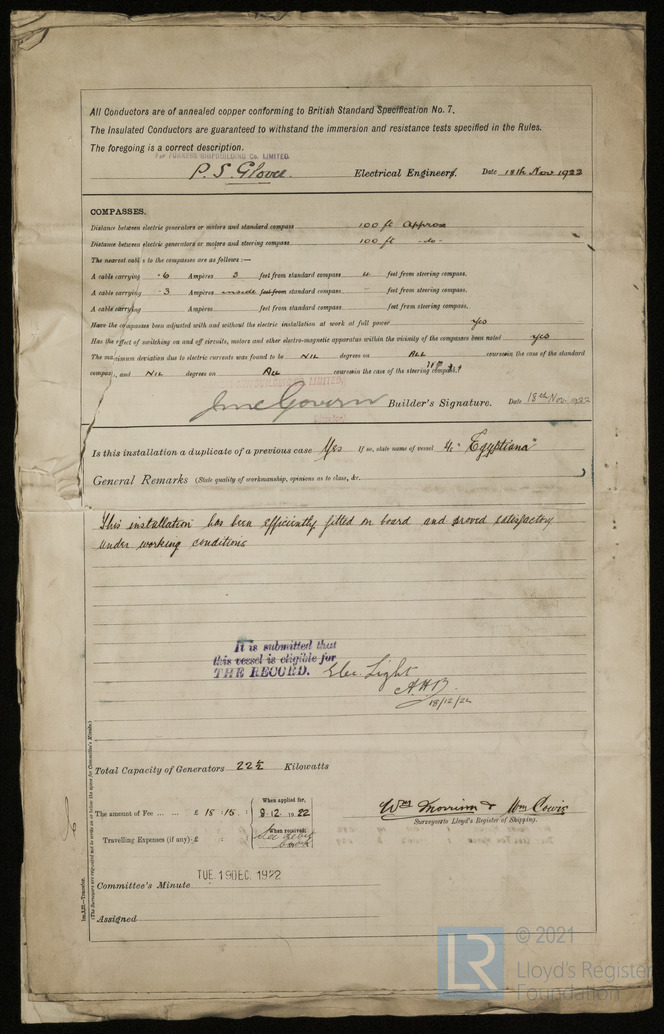 All Conductors are of annealed copper conforming to British Standard Specification No. 7.
The Insulated Conductors are guaranteed to withstand the immersion and resistance tests specified in the Rules.
The foregoing is a correct description.
For FURNESS SHIPBUILDING Co. LIMITED.
P. S. Glover. Electrical Engineers. Date 18th Nov 1922
COMPASSES.
Distance between electric generators or motors and standard compass 100 ft Approx
Distance between electric generators or motors and steering compass 100 ft -do-
The nearest cables to the compasses are as follows:—
A cable carrying ·6 Ampères 3 feet from standard compass 4 feet from steering compass.
A cable carrying ·3 Ampères inside feet from standard compass - feet from steering compass.
A cable carrying Ampères feet from standard compass feet from steering compass.
Have the compasses been adjusted with and without the electric installation at work at full power yes
Has the effect of switching on and off circuits, motors and other electro-magnetic apparatus within the vicinity of the compasses been noted yes
The maximum deviation due to electric currents was found to be NIL degrees on ALL course in the case of the standard
compass, and NIL degrees on ALL course in the case of the steering compass.
SHIPBUILDING LIMITED.
J McGovern Builder's Signature. Date 18th Nov. 1922
Is this installation a duplicate of a previous case Yes If so, state name of vessel "Egyptiana"
General Remarks (State quality of workmanship, opinions as to class, &c.
This installation has been efficiently fitted on board and proved satisfactory
under working conditions
It is submitted that
this vessel is eligible for
THE RECORD. Elec. Light
A.H.B.
18/12/22
Total Capacity of Generators 22½ Kilowatts
The amount of Fee ... ... £ 18 : 15 : When applied for, 8·12·1922
Travelling Expenses (if any) £ : : When received,
Wm Morrison & Wm Cowie
Surveyors to Lloyd's Register of Shipping.
Committee's Minute TUE. 19 DEC. 1922
Assigned
(The Surveyors are requested not to write on or below the space for Committee's Minute.)
© 2021
LR Lloyd's Register
Foundation